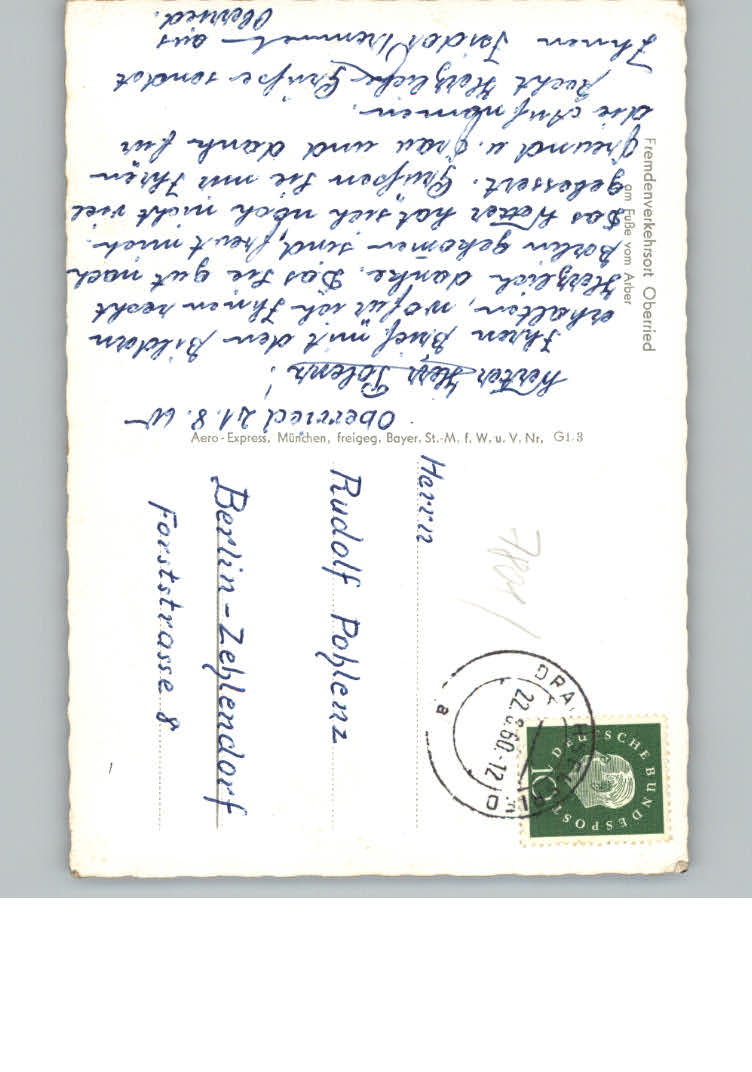 Oberried 21.8.60
Werter Herr Polenz!
Ihren Brief mit den Bildern
erhalten, wofür ich Ihnen recht
Herzlich danke. Das Sie gut nach
Berlin gekomen sind, freut mich.
Das Wetter hat sich noch nicht viel
gebessert. Grüßen Sie mir Ihren
Freund u. Frau und dank für
die Aufnamen.
Recht Herzliche Grüße sendet
Ihnen aus
Oberried.
Fremdenverkehrsort Oberried
am Fuße vom Arber
Aero-Express, München, freigeg. Bayer. St.-M. f. W. u. V. Nr. G1.3
Herrn
Rudolf Pohlenz
Berlin-Zehlendorf
Forststrasse 8
22.8.60.-12
a
DEUTSCHE BUNDESPOST
10